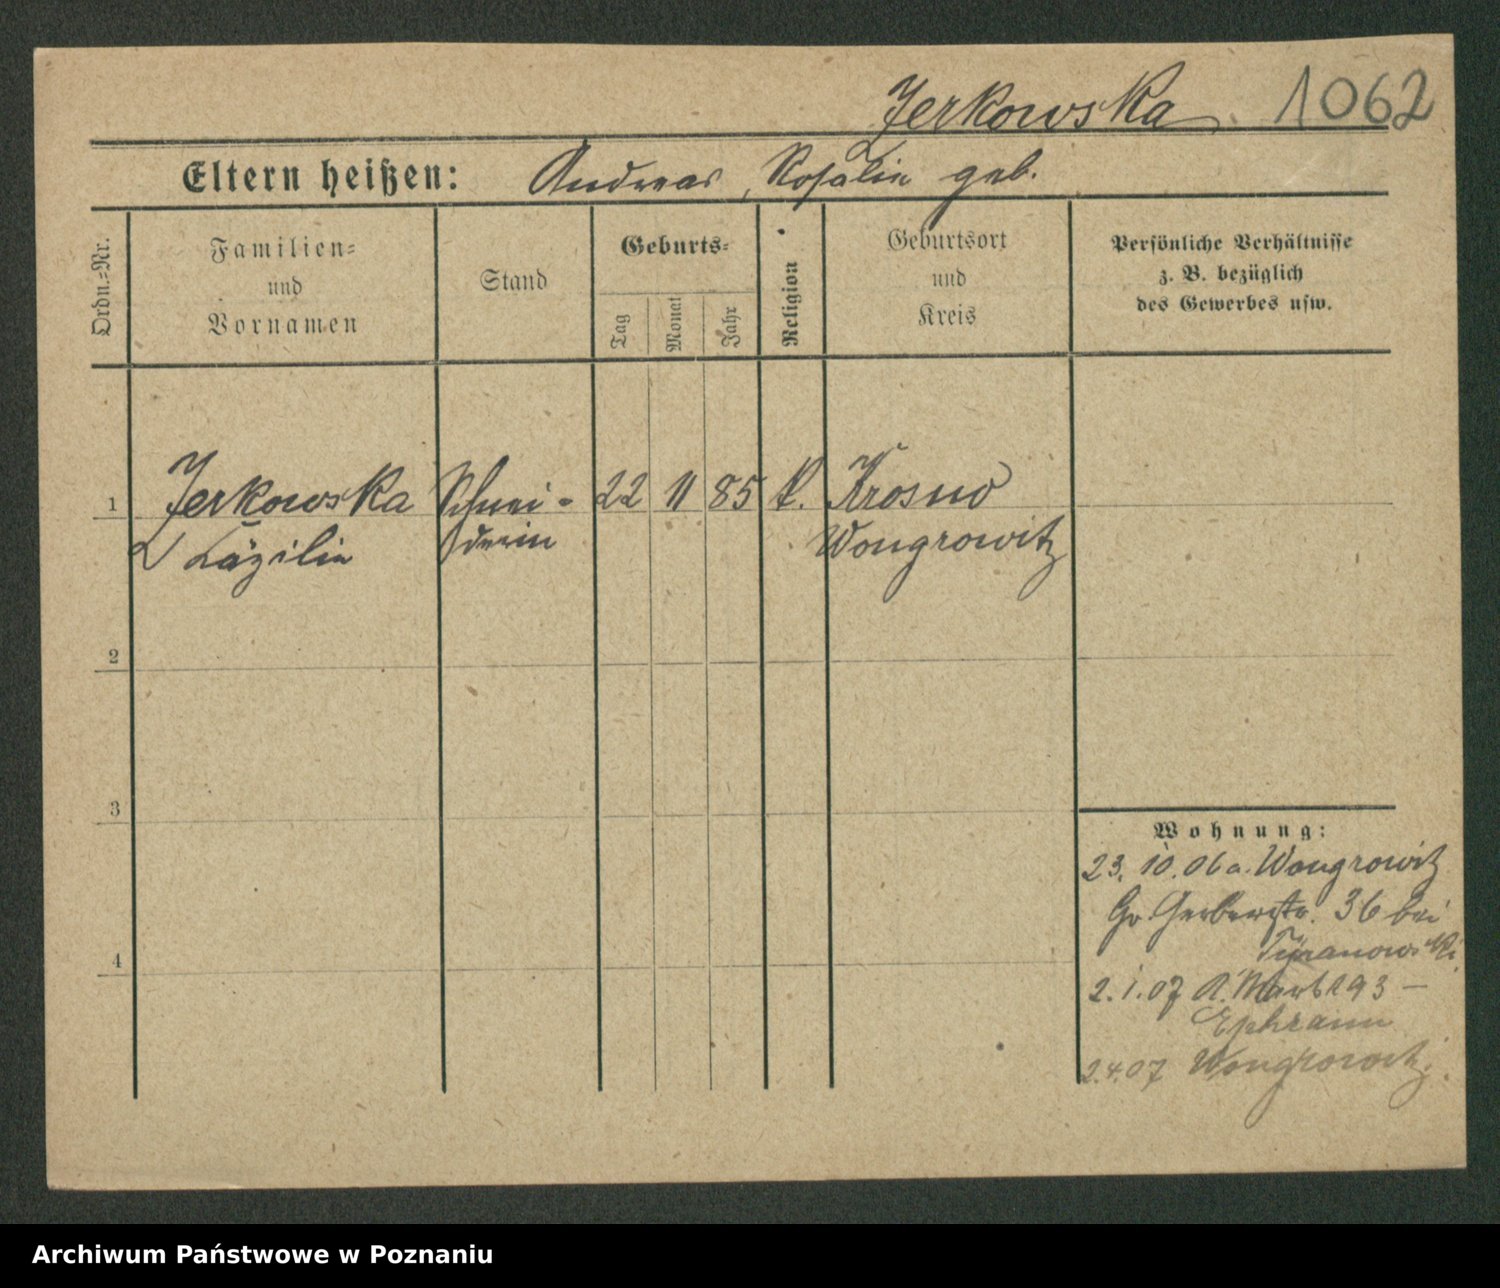 Jerkowska. 1062
Eltern heißen: Andreas, Rosalie geb.
Ordn.-Nr.
Familien-
und
Vornamen
Stand
Geburts-
Tag
Monat
Jahr
Religion
Geburtsort
und
Kreis
Persönliche Verhältnisse
z. B. bezüglich
des Gewerbes usw.
1 Jerkowska Schnei- 22 11 85 k. Krosno
Käzilie derin Wongrowitz
2
3
4
Wohnung:
23. 10. 06 a. Wongrowitz
Gr. Gerberstr. 36 bei
Tyranowski
2. 1. 07 A. Markt 93 –
Ephraim
2.4.07 Wongrowitz.
Archiwum Państwowe w Poznaniu